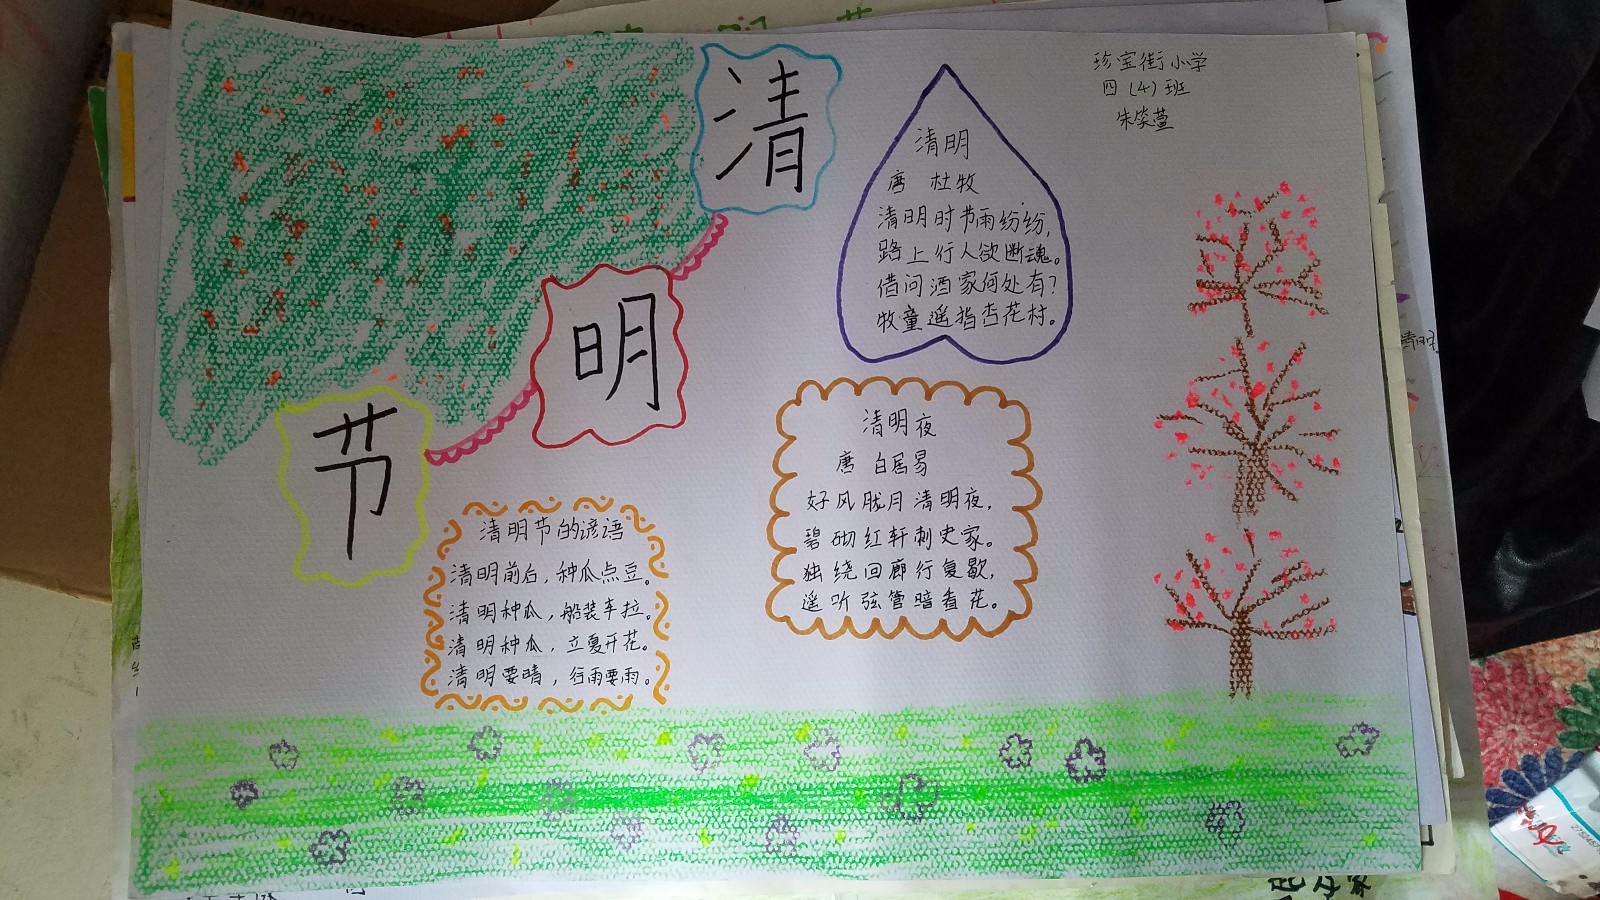 清
明
节
珍宝街小学
四(4)班
清明
唐 杜牧
清明时节雨纷纷,
路上行人欲断魂。
借问酒家何处有?
牧童遥指杏花村。
清明夜
唐 白居易
好风胧月清明夜,
碧砌红轩刺史家。
独绕回廊行复歇,
遥听弦管暗看花。
清明节的谚语
清明前后,种瓜点豆。
清明种瓜,船装车拉。
清明种瓜,立夏开花。
清明要晴,谷雨要雨。